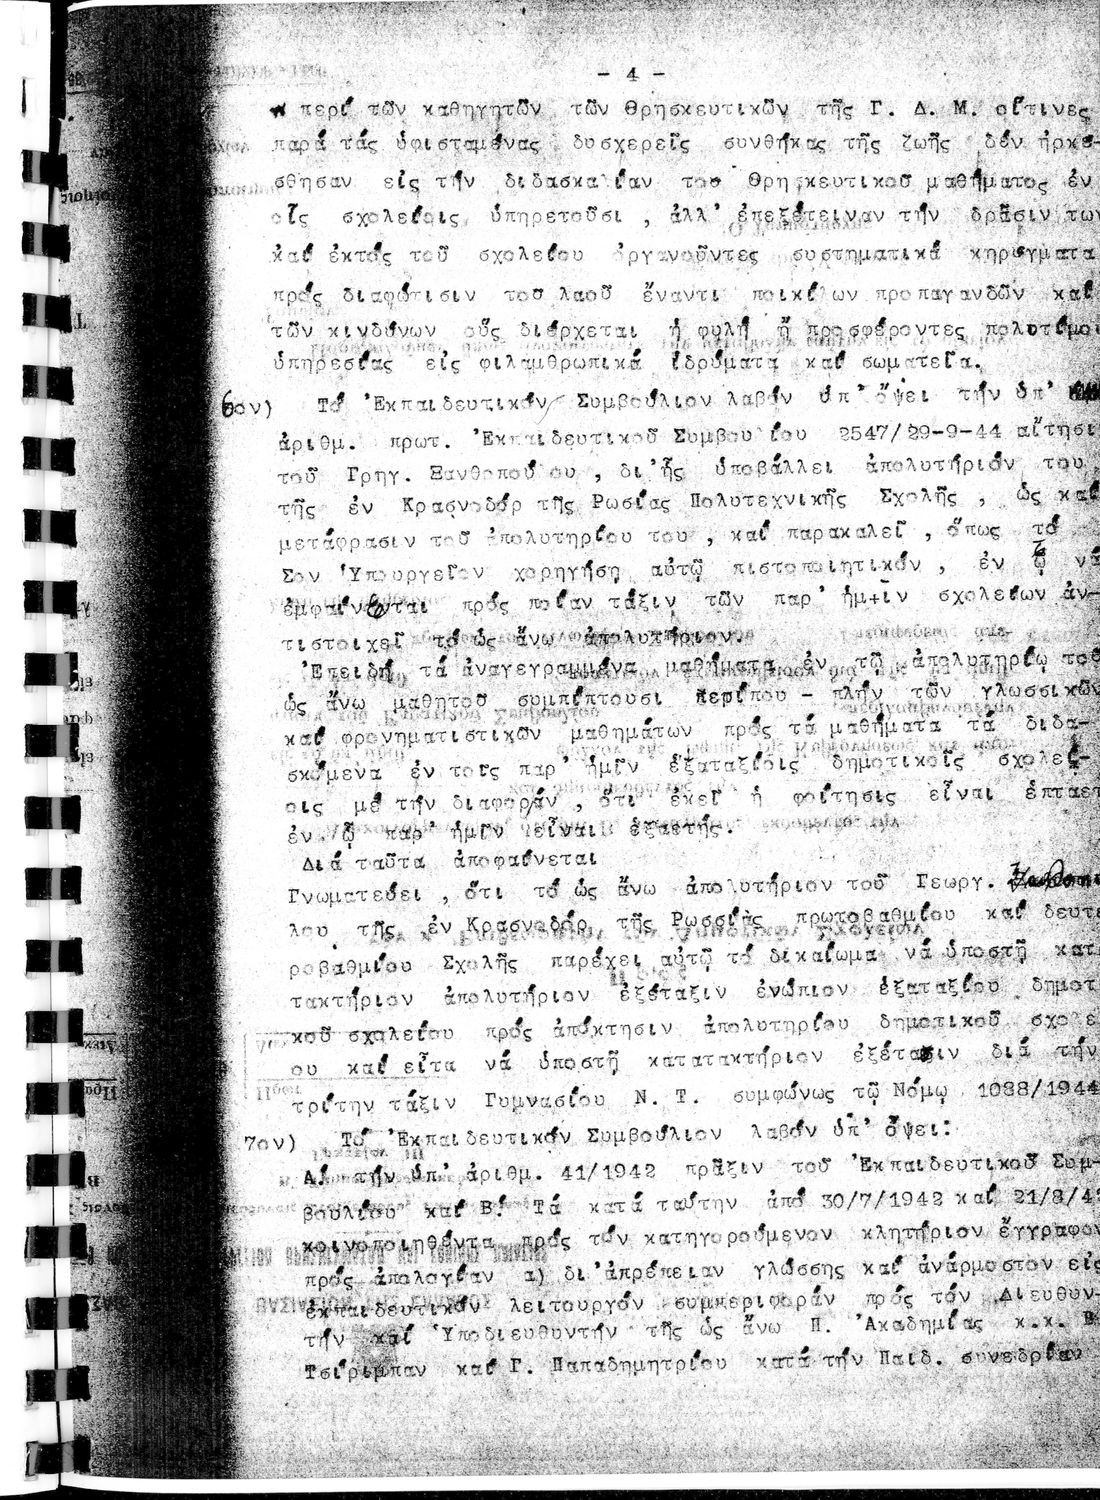 - 4 -
περί τῶν καθηγητῶν τῶν θρησκευτικῶν τῆς Γ. Δ. Μ. οἵτινες
παρά τάς ὑφισταμένας δυσχερεῖς συνθήκας τῆς ζωῆς δέν ἠρκέ-
σθησαν εἰς τήν διδασκαλίαν τοῦ θρησκευτικοῦ μαθήματος ἐν
οἷς σχολείοις ὑπηρετοῦσι , ἀλλ' ἐπεξέτειναν τήν δρᾶσιν των
καί ἐκτός τοῦ σχολείου ὀργανοῦντες συστηματικά κηρύγματα
πρός διαφώτισιν τοῦ λαοῦ ἔναντι ποικίλων προπαγανδῶν καί
τῶν κινδύνων οὕς διέρχεται ἡ φυλή ἤ προσφέροντες πολυτίμου
ὑπηρεσίας εἰς φιλαμθρωπικά ἱδρύματα καί σωματεῖα.
6ον) Τό Ἐκπαιδευτικόν Συμβούλιον λαβόν ὑπ' ὄψει τήν ὑπ'
ἀριθμ. πρωτ. Ἐκπαιδευτικοῦ Συμβουλίου 2547/29-9-44 αἴτησι
τοῦ Γρηγ. Ξανθοπούλου , δι'ἧς ὑποβάλλει ἀπολυτήριόν του
τῆς ἐν Κρασνοδόρ τῆς Ρωσίας Πολυτεχνικῆς Σχολῆς , ὡς καί
μετάφρασιν τοῦ ἀπολυτηρίου του , καί παρακαλεῖ , ὅπως τό
Σον Ὑπουργεῖον χορηγήσῃ αὐτῷ πιστοποιητικόν , ἐν ᾧ νά
ἐμφαίνεται πρός ποίαν τάξιν τῶν παρ' ἡμ+ῖν σχολείων ἀν-
τιστοιχεῖ τό ὡς ἄνω ἀπολυτήριον.
Ἐπειδή τά ἀναγεγραμμένα μαθήματα ἐν τῷ ἀπολυτηρίῳ τοῦ
ὡς ἄνω μαθητοῦ συμπίπτουσι περίπου - πλήν τῶν γλωσσικῶν
καί φρονηματιστικῶν μαθημάτων πρός τά μαθήματα τά διδα-
σκόμενα ἐν τοῖς παρ' ἡμῖν ἑξαταξίοις δημοτικοῖς σχολεί-
οις μέ τήν διαφοράν , ὅτι ἐκεῖ ἡ φοίτησις εἶναι ἑπταετ
ἐν ᾧ παρ' ἡμῖν εἶναι ἑξαετής.
Διά ταῦτα ἀποφαίνεται
Γνωματεύει , ὅτι τό ὡς ἄνω ἀπολυτήριον τοῦ Γεωργ.
λου τῆς ἐν Κρασνοδόρ τῆς Ρωσσίας πρωτοβαθμίου καί δευτε
ροβαθμίου Σχολῆς παρέχει αὐτῷ τό δικαίωμα νά ὑποστῇ κατ
τακτήριον ἀπολυτήριον ἐξέτασιν ἐνώπιον ἑξαταξίου δημοτ
κοῦ σχολείου πρός ἀπόκτησιν ἀπολυτηρίου δημοτικοῦ σχολε
ου καί εἶτα νά ὑποστῇ κατατακτήριον ἐξέτασιν διά τήν
τρίτην τάξιν Γυμνασίου Ν. Τ. συμφώνως τῷ Νόμῳ 1088/1944
7ον) Τό Ἐκπαιδευτικόν Συμβούλιον λαβόν ὑπ' ὄψει:
Α) τήν ὑπ' ἀριθμ. 41/1942 πρᾶξιν τοῦ Ἐκπαιδευτικοῦ Συμ-
βουλίου καί Β) Τά κατά ταύτην ἀπό 30/7/1942 καί 21/8/42
κοινοποιηθέντα πρός τόν κατηγορούμενον κλητήριον ἔγγραφον
πρός ἀπολογίαν α) δι'ἀπρέπειαν γλώσσης καί ἀνάρμοστον εἰς
ἐκπαιδευτικόν λειτουργόν συμπεριφοράν πρός τόν Διευθυν-
τήν καί Ὑποδιευθυντήν τῆς ὡς ἄνω Π. Ἀκαδημίας κ.κ. Β.
Τσίριμπαν καί Γ. Παπαδημητρίου κατά τήν Παιδ. συνεδρίαν